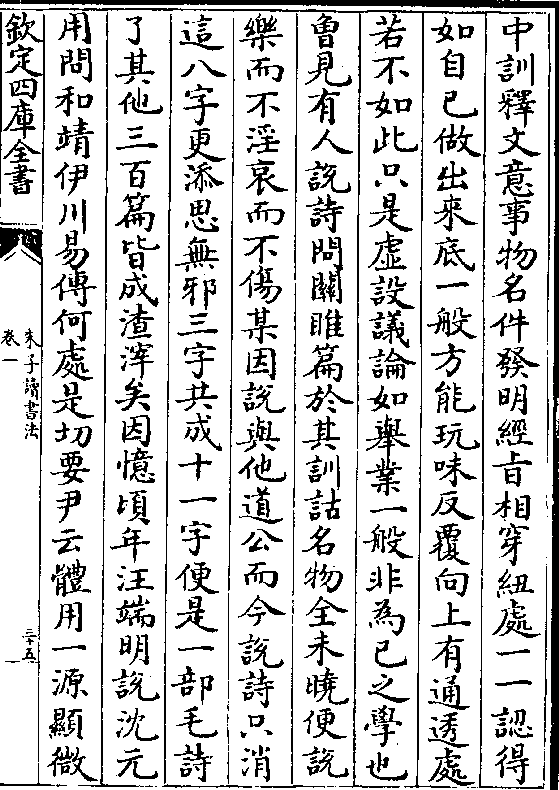 中訓釋文意事物名件發明經㫖相穿紐處一一認得
如自已做出來底一般方能玩味反覆向上有通透處
若不如此只是虚設議論如舉業一般非為已之學也
曾見有人說詩問關雎篇於其訓詁名物全未曉便說
樂而不淫哀而不傷某因說與他道公而今說詩只消
這八字更添思無邪三字共成十一字便是一部毛詩
了其他三百篇皆成渣滓矣因憶頃年汪端明說沈元
用問和靖伊川易傳何處是切要尹云體用一源顯微
欽定四庫全書
朱子讀書法
卷一
三十五